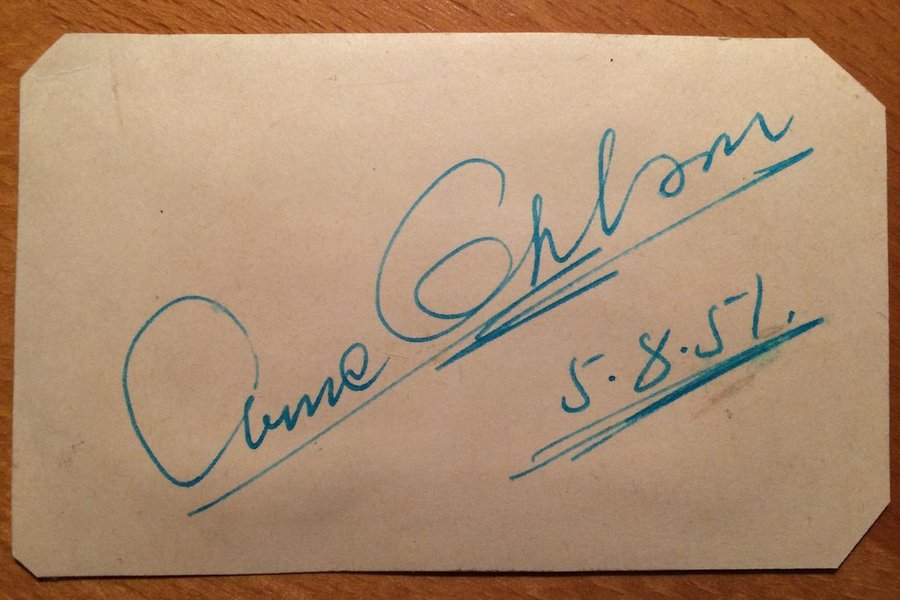 Arne Ohlson
5.8.51.